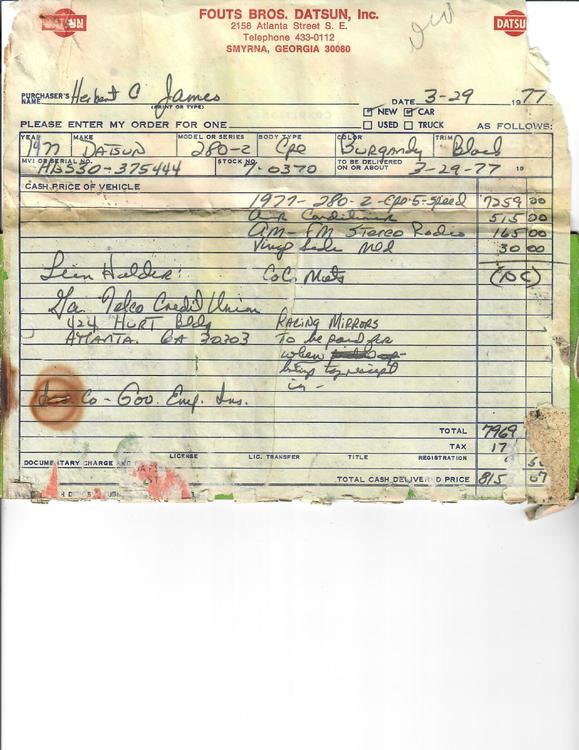 DATSUN
FOUTS BROS. DATSUN, Inc.
DATSUN
2158 Atlanta Street S. E.
Telephone 433-0112
SMYRNA, GEORGIA 30080
PURCHASER'S NAME Herbert C James
(PRINT OR TYPE)
DATE 3-29 1977
NEW CAR
PLEASE ENTER MY ORDER FOR ONE
USED TRUCK AS FOLLOWS:
YEAR MAKE MODEL OR SERIES BODY TYPE COLOR TRIM
1977 DATSUN 280-Z Cpe Burgandy Black
MVI OR SERIAL NO. STOCK NO. TO BE DELIVERED ON OR ABOUT
HLS30-375444 7-0370 3-29-77 19
CASH PRICE OF VEHICLE
1977-280-Z-Cpe-5-Speed 7259 00
Air Conditioner 515 00
AM-FM Stereo Radio 165 00
Vinyl Side Mld 30 00
Lein Holder: CoCo Mats (NC)
Ga. Telco Credit Union
424 HURT Bldg RACING MIRRORS
ATLANTA. GA 30303 To be paid for
when
bring receipt
in -
Ins Co - Gov. Emp. Ins.
TOTAL 7969
TAX 17
LICENSE LIC. TRANSFER TITLE REGISTRATION
DOCUMENTARY CHARGE AND
TOTAL CASH DELIVERED PRICE 815 07